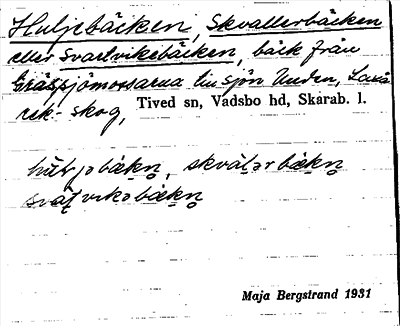 Huljebäcken, Skvallerbäcken
eller Svartviksbäcken, bäck från
Grässjömossarna till sjön Unden, Laxå
rek-skog, Tived sn, Vadsbo hd, Skarab. l.
svaṭvikəbäkn̥
Maja Bergstrand 1931